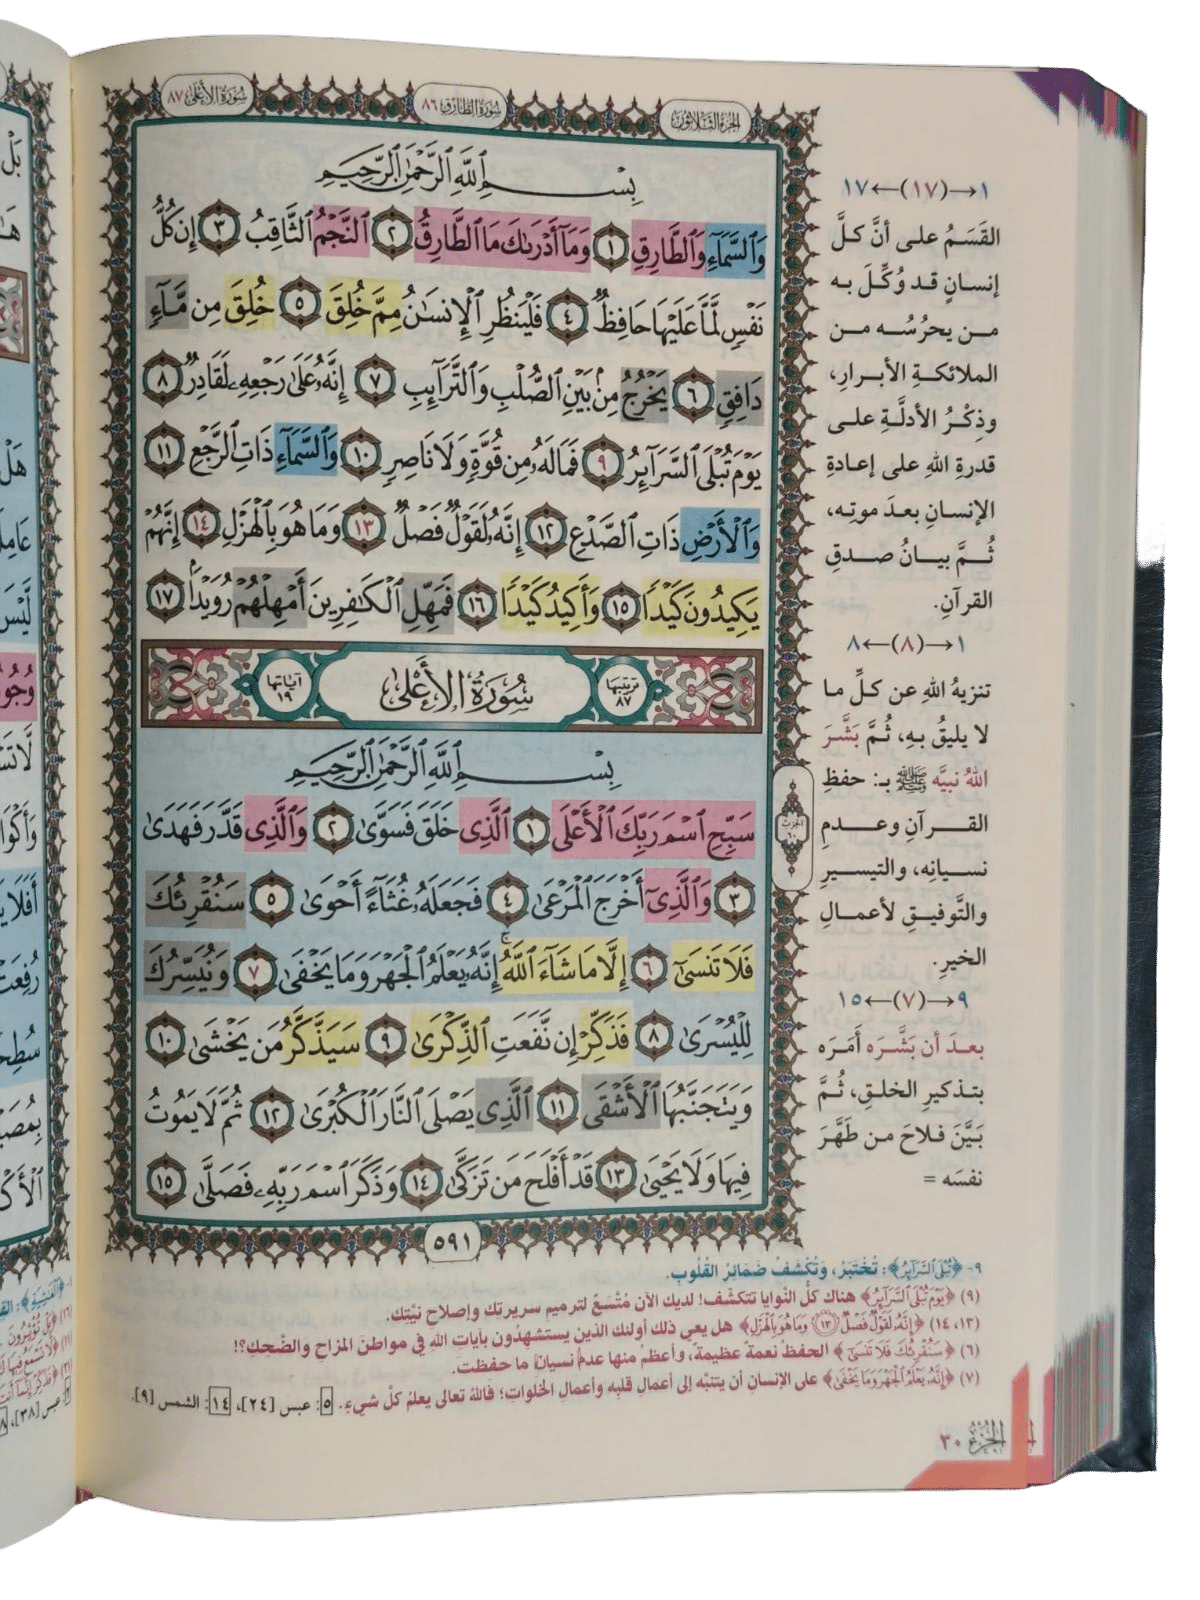 الجزء الثلاثون
سورة الطارق ٨٦
سورة الأعلى ٨٧
بِسْمِ ٱللَّهِ ٱلرَّحْمَٰنِ ٱلرَّحِيمِ
وَٱلسَّمَآءِ وَٱلطَّارِقِ ١ وَمَآ أَدْرَىٰكَ مَا ٱلطَّارِقُ ٢ ٱلنَّجْمُ ٱلثَّاقِبُ ٣ إِن كُلُّ
نَفْسٍ لَّمَّا عَلَيْهَا حَافِظٌ ٤ فَلْيَنظُرِ ٱلْإِنسَٰنُ مِمَّ خُلِقَ ٥ خُلِقَ مِن مَّآءٍ
دَافِقٍ ٦ يَخْرُجُ مِنۢ بَيْنِ ٱلصُّلْبِ وَٱلتَّرَآئِبِ ٧ إِنَّهُۥ عَلَىٰ رَجْعِهِۦ لَقَادِرٌ ٨
يَوْمَ تُبْلَى ٱلسَّرَآئِرُ ٩ فَمَا لَهُۥ مِن قُوَّةٍ وَلَا نَاصِرٍ ١٠ وَٱلسَّمَآءِ ذَاتِ ٱلرَّجْعِ ١١
وَٱلْأَرْضِ ذَاتِ ٱلصَّدْعِ ١٢ إِنَّهُۥ لَقَوْلٌ فَصْلٌ ١٣ وَمَا هُوَ بِٱلْهَزْلِ ١٤ إِنَّهُمْ
يَكِيدُونَ كَيْدًا ١٥ وَأَكِيدُ كَيْدًا ١٦ فَمَهِّلِ ٱلْكَٰفِرِينَ أَمْهِلْهُمْ رُوَيْدًۢا ١٧
ترتيبها ٨٧ سُورَةُ الأَعْلَىٰ آياتها ١٩
بِسْمِ ٱللَّهِ ٱلرَّحْمَٰنِ ٱلرَّحِيمِ
سَبِّحِ ٱسْمَ رَبِّكَ ٱلْأَعْلَى ١ ٱلَّذِى خَلَقَ فَسَوَّىٰ ٢ وَٱلَّذِى قَدَّرَ فَهَدَىٰ
٣ وَٱلَّذِىٓ أَخْرَجَ ٱلْمَرْعَىٰ ٤ فَجَعَلَهُۥ غُثَآءً أَحْوَىٰ ٥ سَنُقْرِئُكَ
فَلَا تَنسَىٰٓ ٦ إِلَّا مَا شَآءَ ٱللَّهُ ۚ إِنَّهُۥ يَعْلَمُ ٱلْجَهْرَ وَمَا يَخْفَىٰ ٧ وَنُيَسِّرُكَ
لِلْيُسْرَىٰ ٨ فَذَكِّرْ إِن نَّفَعَتِ ٱلذِّكْرَىٰ ٩ سَيَذَّكَّرُ مَن يَخْشَىٰ ١٠
وَيَتَجَنَّبُهَا ٱلْأَشْقَى ١١ ٱلَّذِى يَصْلَى ٱلنَّارَ ٱلْكُبْرَىٰ ١٢ ثُمَّ لَا يَمُوتُ
فِيهَا وَلَا يَحْيَىٰ ١٣ قَدْ أَفْلَحَ مَن تَزَكَّىٰ ١٤ وَذَكَرَ ٱسْمَ رَبِّهِۦ فَصَلَّىٰ ١٥
٥٩١
١→(١٧)←١٧
القَسَمُ على أنَّ كلَّ
إنسانٍ قد وُكِّلَ به
من يحرُسُه من
الملائكةِ الأبرارِ،
وذِكْرُ الأدلَّةِ على
قدرةِ اللهِ على إعادةِ
الإنسانِ بعدَ موتِه،
ثُمَّ بيانُ صدقِ
القرآنِ.
١→(٨)←٨
تنزيهُ اللهِ عن كلِّ ما
لا يليقُ بهِ، ثُمَّ بَشَّرَ
اللهُ نبيَّه ﷺ بـ: حفظِ
القرآنِ وعدمِ
نسيانِه، والتيسيرِ
والتَّوفيقِ لأعمالِ
الخيرِ.
٩→(٧)←١٥
بعدَ أن بَشَّرَه أمَرَه
بتذكيرِ الخلقِ، ثُمَّ
بَيَّنَ فلاحَ من طَهَّرَ
نفسَه =
الحزب ٦٠
٩- ﴿تُبْلَى ٱلسَّرَآئِرُ﴾: تُخْتَبَرُ، وَتُكْشَفُ ضَمَائِرُ القُلُوبِ.
(٩) ﴿يَوْمَ تُبْلَى ٱلسَّرَآئِرُ﴾ هناك كلُّ النَّوايا تتكشَّف! لديك الآن مُتَّسَعٌ لترميمِ سريرتِك وإصلاحِ نيَّتِك.
(١٣، ١٤) ﴿إِنَّهُۥ لَقَوْلٌ فَصْلٌ ١٣ وَمَا هُوَ بِٱلْهَزْلِ﴾ هل يعي ذلك أولئك الذين يستشهدون بآياتِ اللهِ في مواطنِ المزاحِ والضَّحكِ؟!
(٦) ﴿سَنُقْرِئُكَ فَلَا تَنسَىٰٓ﴾ الحفظُ نعمةٌ عظيمةٌ، وأعظمُ منها عدمُ نسيانِ ما حفظت.
(٧) ﴿إِنَّهُۥ يَعْلَمُ ٱلْجَهْرَ وَمَا يَخْفَىٰ﴾ على الإنسانِ أن يتنبَّه إلى أعمالِ قلبِه وأعمالِ الخَلَواتِ؛ فاللهُ تعالى يعلمُ كلَّ شيءٍ. ٥: عبس [٢٤]، ١٤: الشمس [٩].
الجزء ٣٠